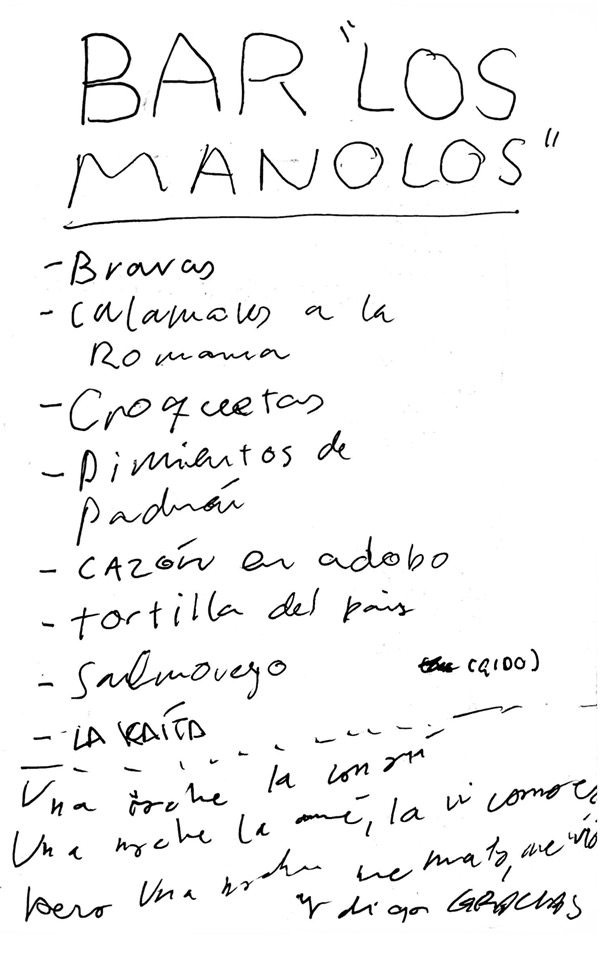 BAR "LOS
MANOLOS"
- Bravas
- Calamares a la
Romana
- Croquetas
- Pimientos de
Padrón
- CAZÓN en adobo
- tortilla del país
- Salmorejo
(QIDO)
- LA
Una noche la
Una noche la amé, la vi como es
pero una noche me mato, me vio
y digo GRACIAS